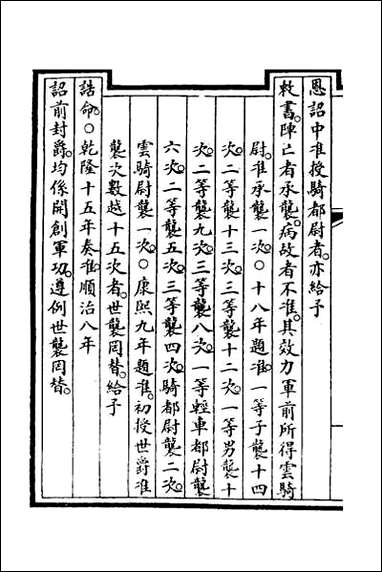 恩詔中准授騎都尉者。亦給予
敕書。陣亡者承襲。病故者不准。其效力軍前所得雲騎
尉。准承襲一次。○十八年題准。一等子襲十四
次。二等襲十三次。三等襲十二次。一等男襲十
次。二等襲九次。三等襲八次。一等輕車都尉襲
六次。二等襲五次。三等襲四次。騎都尉襲二次。
雲騎尉襲一次。○康熙九年題准。初授世爵准
襲次數越十五次者。世襲罔替。給予
誥命。○乾隆十五年奏准。順治八年
詔前封爵。均係開創軍功。遵例世襲罔替。